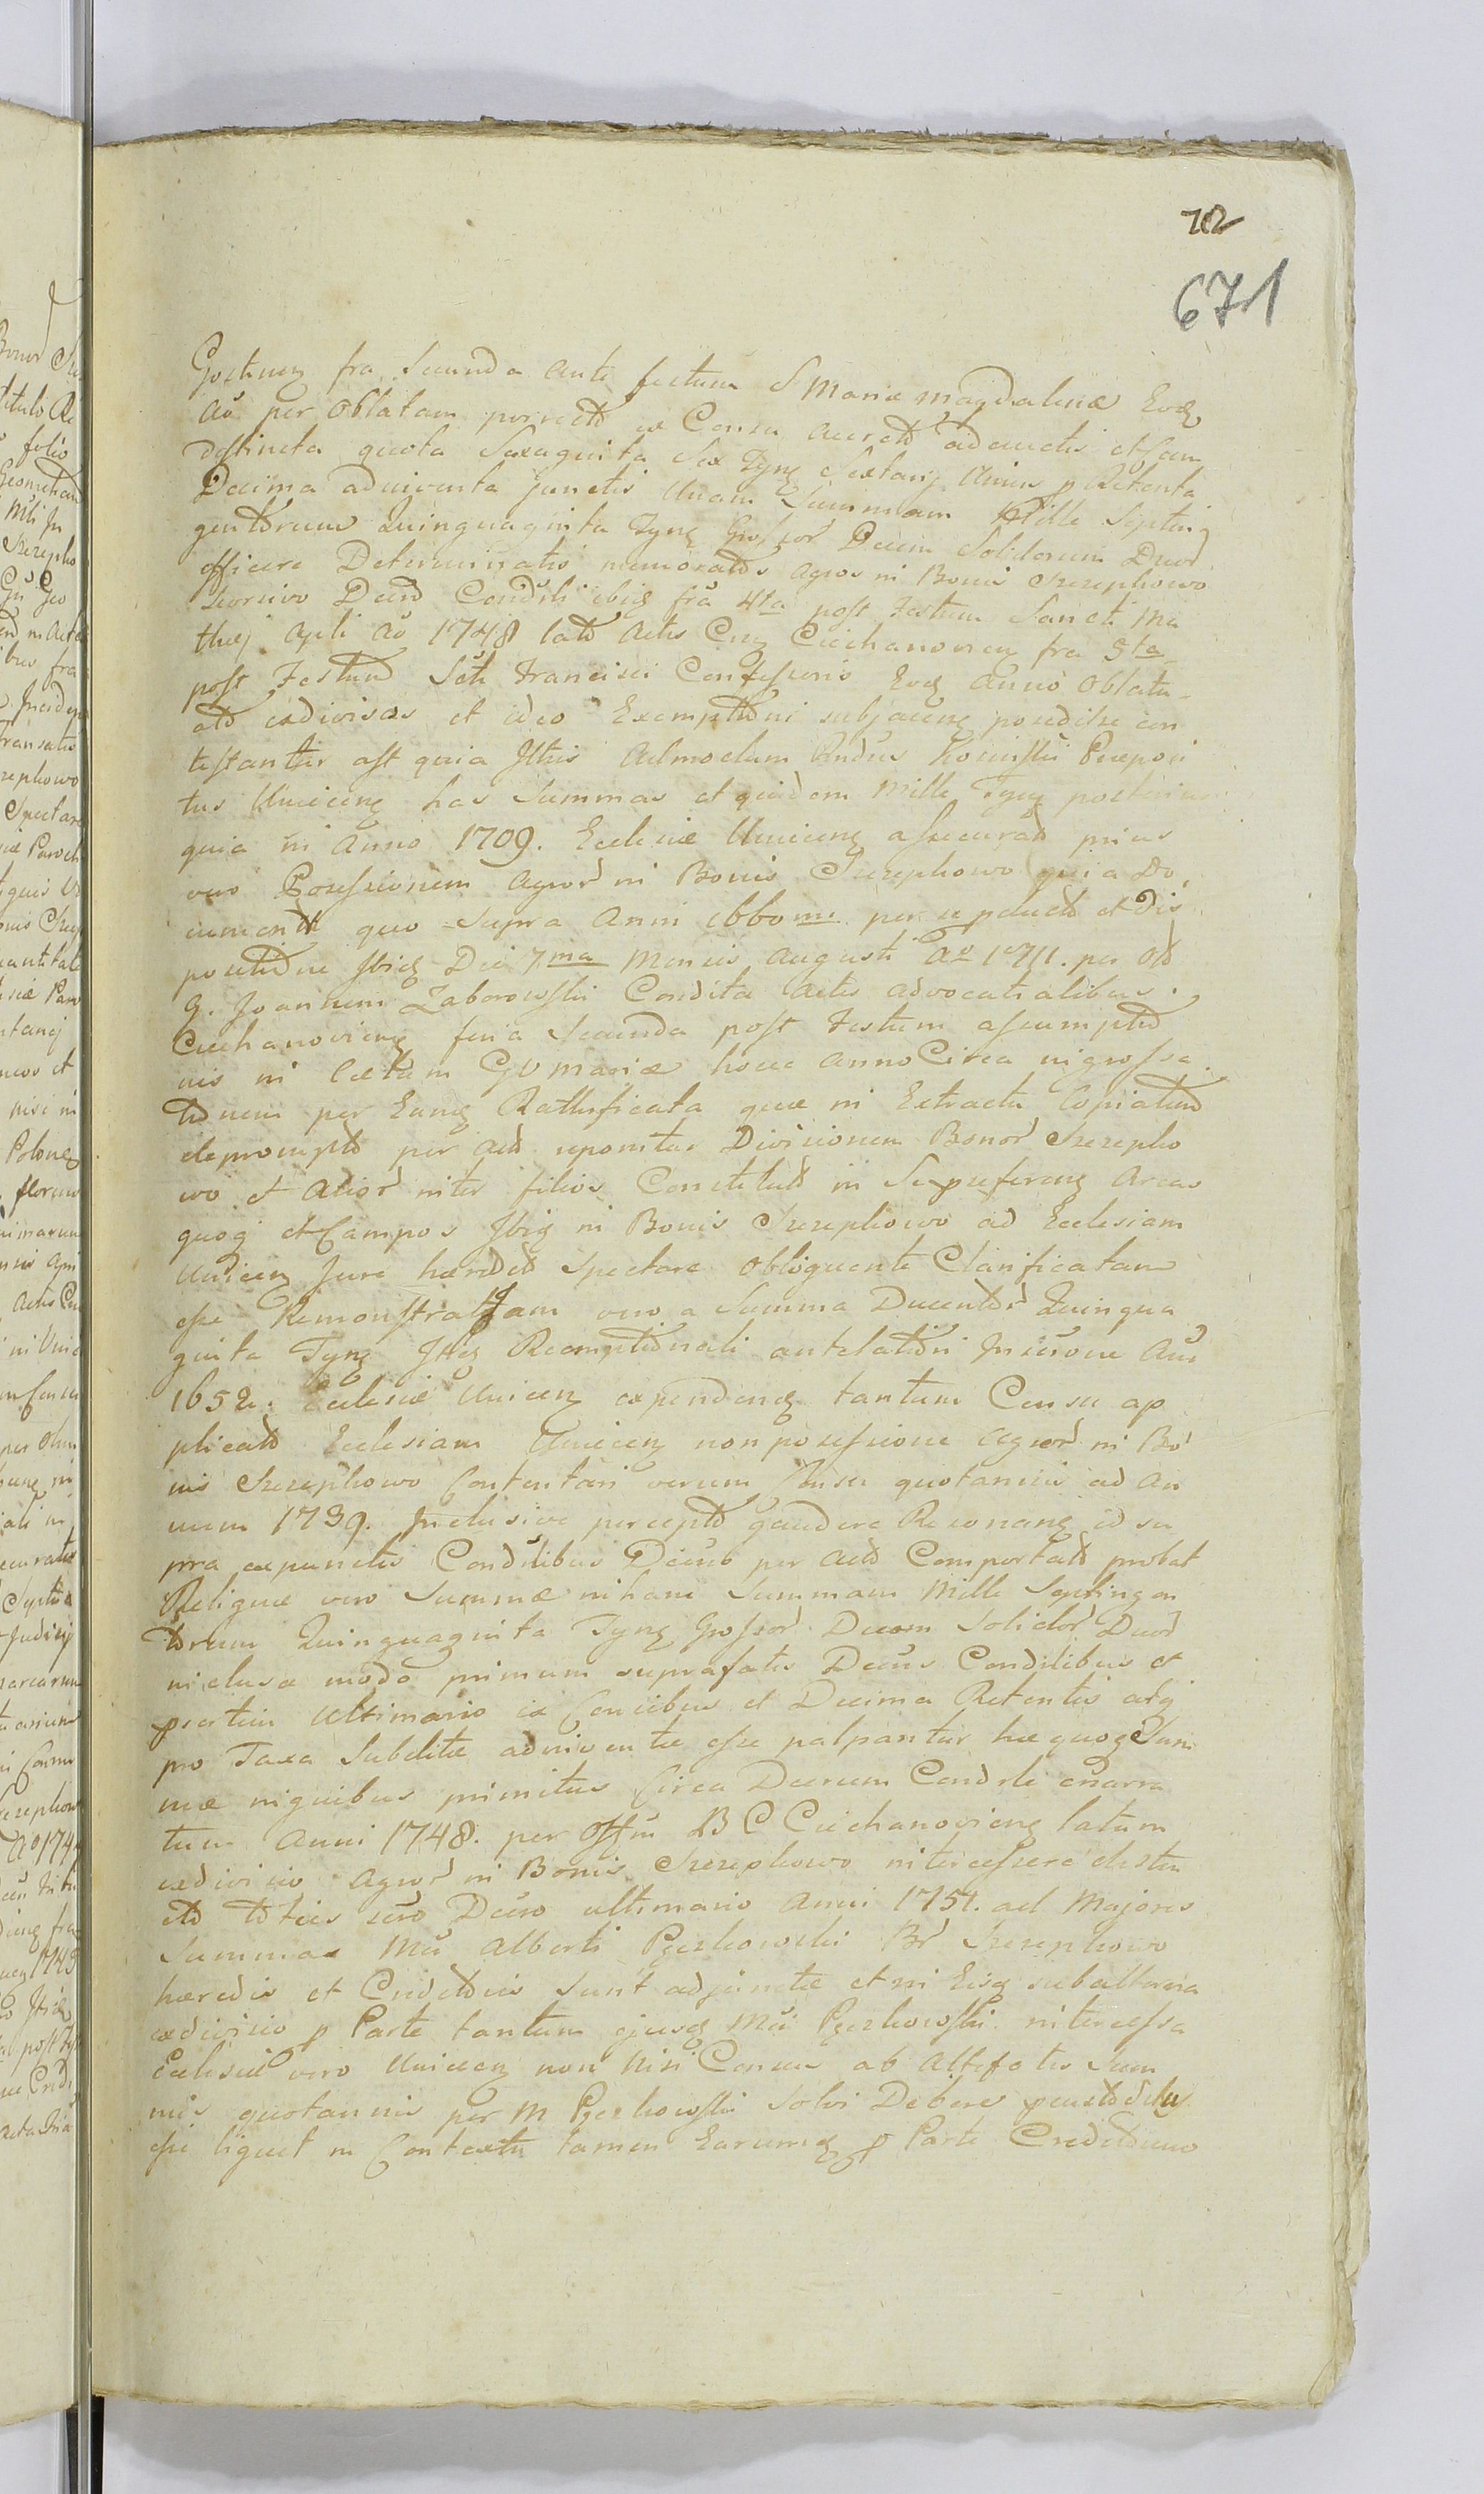 702
671
Gostinen fra Secunda ante festum S Mariæ Magdalenæ Eodq
Aō per Oblatam porrectō ex Censu accretō adauctis et Sum
distincta quota Sexaginta Sex Tynf Sextary Unius p Retenta
Decima adinventa junctis Unam Summam Mille Septin
gentorum Quinquaginta Tynf Grossor Decem Solidorum Duor
efficere Determinatis memoratos Agros in Bonis Szczephowo
Decrō Condīli ibiq fra 4ta post Festum Sancti Ma
thej Apli Aō 1748 latō Actis Cnq Ciechanovien fra 5ta
post Festum Scti Francisci Confessoris Eodq Anno Oblatu
atō exdivisos et ideo Exemptioni subjacenq possedisse con
testantur ast quia Illris Admodum Rndus Kominski Præposi
tus Uniecenq has Summas et quidem Mille Tynf posterius
quia in Anno 1709. Ecclesiæ Uniecenq assecuratō prius
vero Possessionem Agror in Bonis Szczephowo quia Do
cumentō quo supra Anni 1660mi per se et Dis
positione Ibiq Die 7ma Mensis Augusti Aō 1711. per Olō
G. Joannem Zaborowski Condita Actis Advocatialibus
Ciechanovienq feria Secunda post Festum Assumptio
nis in Cælum BV Mariæ hocce Anno Circa ingrossa
tionem per Eunq Rattificata quæ in Extractu Copiatim
depromptō per Actō reponitur Divisionem Bonor Szczepho
wo et Alior inter filios Constitutō in Se præferenq Areas
quoq et Campos Ibiq in Bonis Szczephowo ad Ecclesiam
Uniecenq Jure hæredō Spectare Obloquente Clarificatam
esse Remonstrat Jam vero a Summa Ducentor Quinqua
ginta Tynf Itq Reemptionali antelationi Inscrōne Ani
1652. Ecclesiæ Uniecenq expendenq tantum Censu ap
plicatō Ecclesiam Uniecenq non possessione Agror in Bo
nis Szczephowo Contentari verum Censu quotannis ad An
num 1739. Inclusive perceptō gaudere Resonanq id su
pra expunctis Condīlibus Decris per Actō Comportatō probat
Reliquæ vero Summæ in hanc Summam Mille Septingen
torum Quinquaginta Tynf Grossor Decem Solidor Duor
inclusæ modō primum suprafatis Decris Condīlibus et
præsertim Ultimario ex Censibus et Decima Retentis atq
pro Taxa Subditæ adinventæ esse palpantur hæ quoq Sum
mæ in quibus primitus Circa Decrum Condīle enarra
tum Anni 1748. per Offm B C Ciechanovienq latum
exdivisio Agror in Bonis Szczephowo intercessere distin
ctō toties sero Decro ultimario Anni 1751. ad Majores
Summas Mci Alberti Pęczkowski Br Szczephowo
hæredis et Creditoris Sunt adjunctæ et in Eisq subalterna
exdivisio p Parte tantum ejusq Mci Pęczkowski intercessa
Eclesiæ vero Uniecenq non nisi Census ab Altefatis Sum
mis quotannis per M Pęczkowski Solvi Debere
esse liquet in Contextu tamen Earumq p Parte Creditorum